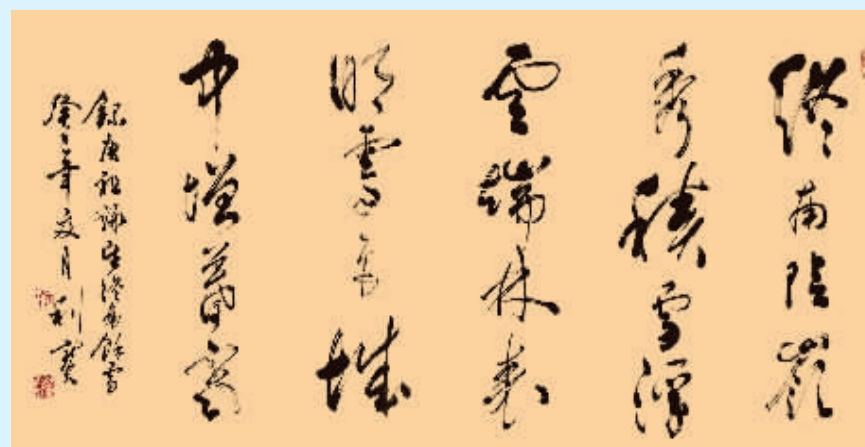 終南陰嶺
秀積雪浮
雲端林表
明霽色城
中增暮寒
錄唐祖詠望終南餘雪
癸巳年夏月利寶